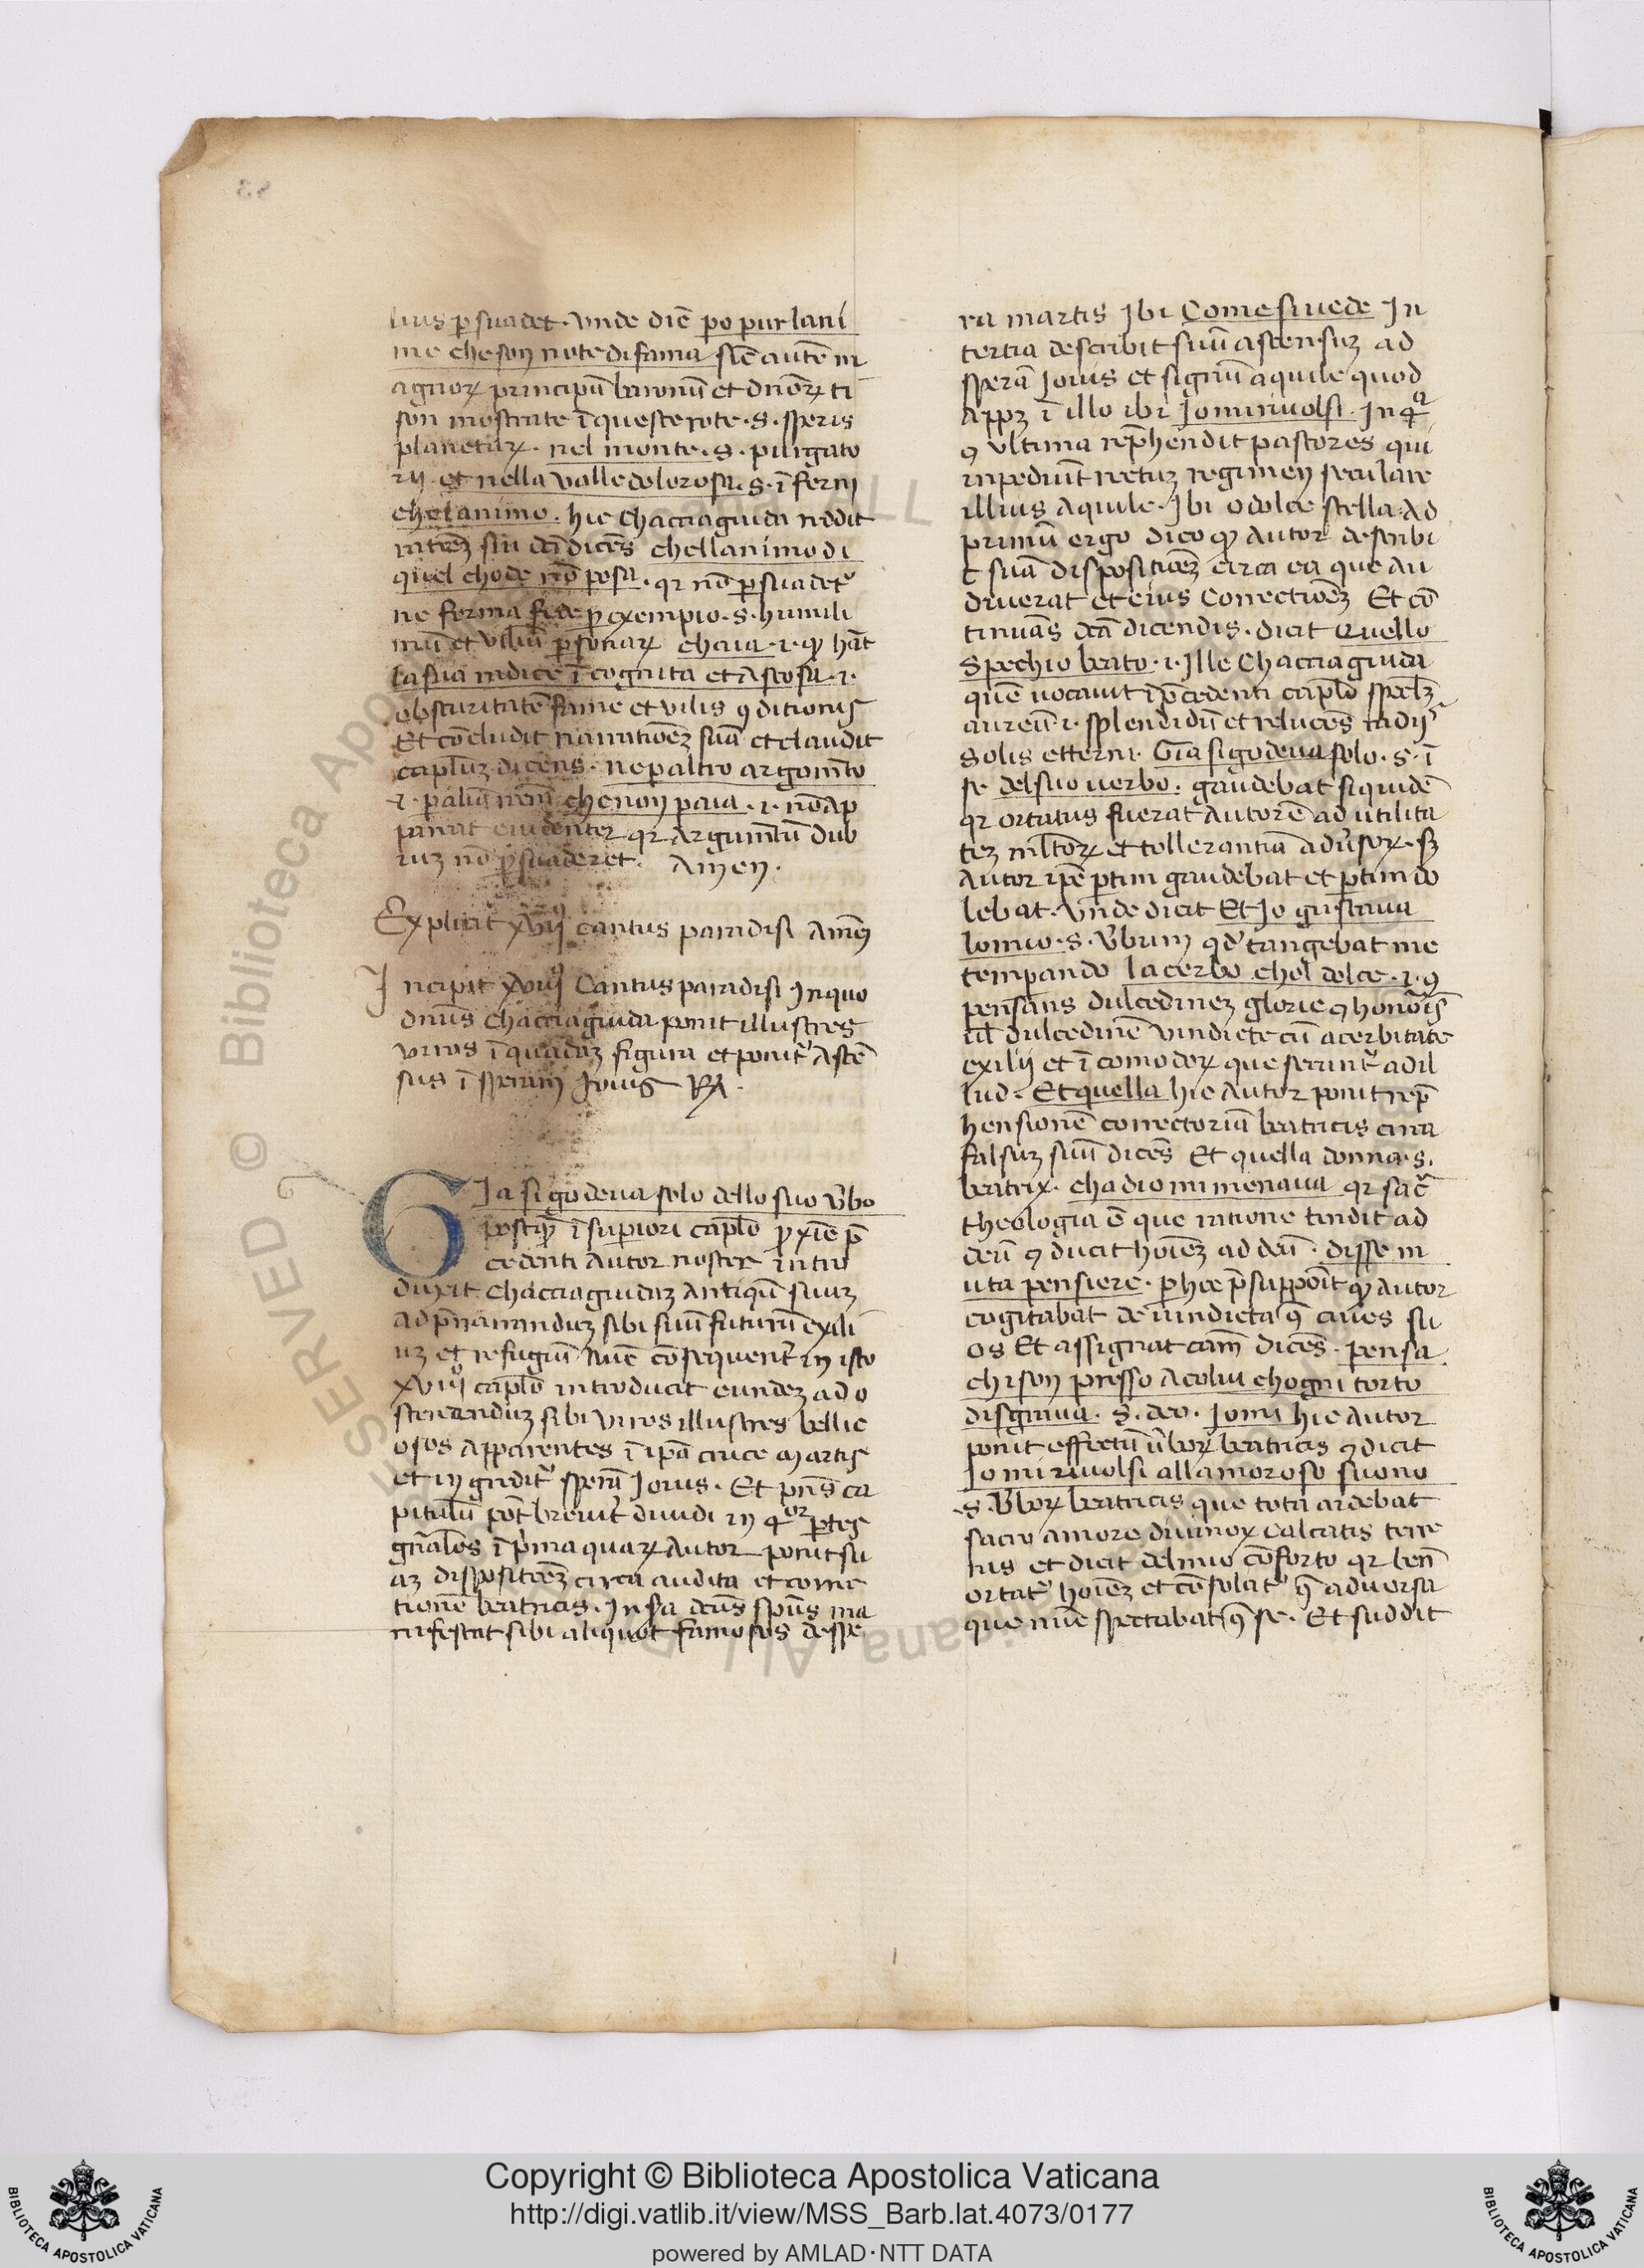 lius ꝑsuadet. vnde diē po pur lani
me che son note di fama siē autē m
agnoꝝ principū baronū et dn̄oꝝ ti
son mostrate ī queste rote .s. speris
planetaꝝ. nel monte .s. purgato
rij et nella valle dolorosa .s. īferni
che lanimo. hic Chacciaguida reddit
chellanimo di
quel chode nō posa. qr nō ꝑsuadet᷑
ne ferma fede ꝑ exempio .s. humili
mū et viliū ꝑsonaꝝ chaia .i. ꝙ hāt
la sua radice īcognita et ascosa .i.
obscuritatē fame et vilis ꝯditionis
Et cōcludit narratiōeꝫ suā et claudit
capl̄uꝫ dicens. ne ꝑ altro argom̄to
.i. ꝑ aliā che non paia .i. nō ap
pareat euidenter qr argum̄tū dub
iuꝫ nō ꝑsuaderet. Amen.
Explicit xvij cantus paradisi Amē
Incipit xviij Cantus paradisi In quo
dn̄us Chacciaguida ponit illustres
viros ī quadaꝫ figura et ponit᷑ ascē
sus ī speram Iouis
Gia si godeua solo dello suo v̄bo
postꝙ̄ ī superiori capl̄o ꝓxīe p̄
cedenti Autor noster intro
duxit Chacciaguidaꝫ antiqū suuꝫ
ad p̄narranduꝫ sibi suū futurū exili
uꝫ et refugiū nūc cōsequent᷑ in isto
xviij capl̄o introducit eundeꝫ ad o
stendenduꝫ sibi viros illustres bellic
osos apparentes ī ip̄a cruce martis
et ingredit᷑ sperā Iouis. Et pn̄s ca
pitulū pōt breuit᷑ diuidi in 4or ꝑtes
gn̄ales ī p̄ma quaꝝ Autor ponit su
aꝫ dispositiōeꝫ circa audita et corre
tionē beatricis. In sc̄da
nifestat sibi aliquot famosos de spe
ra martis Ibi Come si uede In
tertia describit suū ascensuꝫ ad
sperā Iouis et signū aquile quod
appꝫ ī illo ibi Io mi riuolsi. In 4a
ꝯ vltima rep̄hendit pastores qui
inpediūt rectuꝫ regimen seculare
illius Aquile. Ibi o dolce stella. Ad
primū ergo dico ꝙ Autor describi
t suā dispositiōeꝫ circa ea que au
diuerat et eius Correctiōeꝫ Et cō
tinuās dc̄a dicendis. dicit Quello
Spechio beato .i. Ille Chacciaguida
quē uocauit ī p̄cedenti capl̄o specl̄ꝫ
aureū .i. splendidū et relucēs radijs
Solis etterni. Gia si godeua solo .s. ī
se del suo uerbo. gaudebat siquidē
qr ortatus fuerat Autorē ad utilita
teꝫ et tollerantiā aduersoꝝ. sꝫ
Autor ip̄e ꝑtim gaudebat et ꝑtim do
lebat. vnde dicit Et Io gustaua
lo mio .s. v̄bum qd̓ tangebat me
tempando lacerbo chol dolce .i. ꝯ
pensans dulcedineꝫ glorie ꝯ honoris
ul̄ dulcedinē vindicte cū acerbitate
exilij et īcomodoꝝ que secunt᷑ ad il
lud. Et quella hic Autor ponit rep̄
hensionē correctoriā beatricis circa
falsuꝫ suū dicēs Et quella donna .s.
beatrix. cha dio mi menaua qr sac̄
theologia ē que ratione tendit ad
deū ꝯ ducit hoīeꝫ ad deū. disse m
uta pensiere. ꝑ hoc p̄supponit ꝙ Autor
cogitabat de uindicta ꝯ͂ ciues su
os Et assignat cām dicēs. pensa
chi son presso a colui chogni torto
disgraua .s. deo. Io mi hic Autor
ponit effectū v̄boꝝ beatricis ꝯ dicit
Io mi riuolsi allamoroso suono
.s. v̄boꝝ beatricis que tota ardebat
sacro amore diuinoꝝ calcatis terre
nis et dicit del mio cōforto qr ben̄
ortat᷑ hoīeꝫ et cōsolat᷑ ꝯ͂ aduersa
que nūc spectabat ꝯ͂ se. Et suddit
Copyright © Biblioteca Apostolica Vaticana
http://digi.vatlib.it/view/MSS_Barb.lat.4073/0177
powered by AMLAD·NTT DATA
BIBLIOTECA APOSTOLICA VATICANA
BIBLIOTECA APOSTOLICA VATICANA